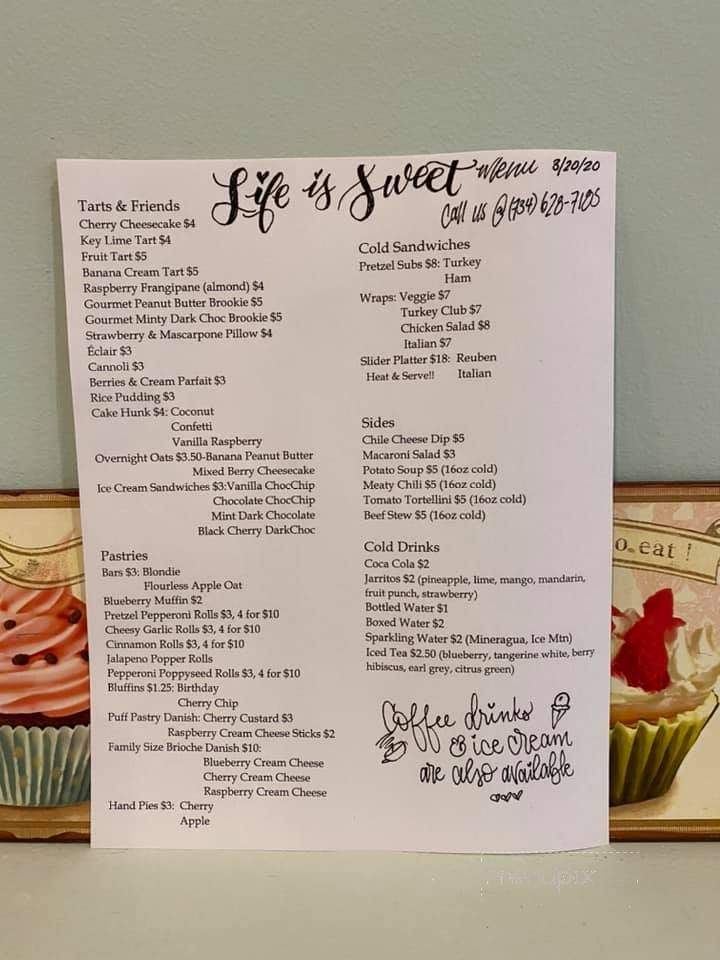 Life is Sweet Menu 3/20/20
Call us @ (734) 628-7105
Tarts & Friends
Cherry Cheesecake $4
Key Lime Tart $4
Fruit Tart $5
Banana Cream Tart $5
Raspberry Frangipane (almond) $4
Gourmet Peanut Butter Brookie $5
Gourmet Minty Dark Choc Brookie $5
Strawberry & Mascarpone Pillow $4
Éclair $3
Cannoli $3
Berries & Cream Parfait $3
Rice Pudding $3
Cake Hunk $4: Coconut
Confetti
Vanilla Raspberry
Overnight Oats $3.50-Banana Peanut Butter
Mixed Berry Cheesecake
Ice Cream Sandwiches $3:Vanilla ChocChip
Chocolate ChocChip
Mint Dark Chocolate
Black Cherry DarkChoc
Pastries
Bars $3: Blondie
Flourless Apple Oat
Blueberry Muffin $2
Pretzel Pepperoni Rolls $3, 4 for $10
Cheesy Garlic Rolls $3, 4 for $10
Cinnamon Rolls $3, 4 for $10
Jalapeno Popper Rolls
Pepperoni Poppyseed Rolls $3, 4 for $10
Bluffins $1.25: Birthday
Cherry Chip
Puff Pastry Danish: Cherry Custard $3
Raspberry Cream Cheese Sticks $2
Family Size Brioche Danish $10:
Blueberry Cream Cheese
Cherry Cream Cheese
Raspberry Cream Cheese
Hand Pies $3: Cherry
Apple
Cold Sandwiches
Pretzel Subs $8: Turkey
Ham
Wraps: Veggie $7
Turkey Club $7
Chicken Salad $8
Italian $7
Slider Platter $18: Reuben
Heat & Serve!! Italian
Sides
Chile Cheese Dip $5
Macaroni Salad $3
Potato Soup $5 (16oz cold)
Meaty Chili $5 (16oz cold)
Tomato Tortellini $5 (16oz cold)
Beef Stew $5 (16oz cold)
Cold Drinks
Coca Cola $2
Jarritos $2 (pineapple, lime, mango, mandarin,
fruit punch, strawberry)
Bottled Water $1
Boxed Water $2
Sparkling Water $2 (Mineragua, Ice Mtn)
Iced Tea $2.50 (blueberry, tangerine white, berry
hibiscus, earl grey, citrus green)
Coffee drinks
& ice cream
are also available
eat !